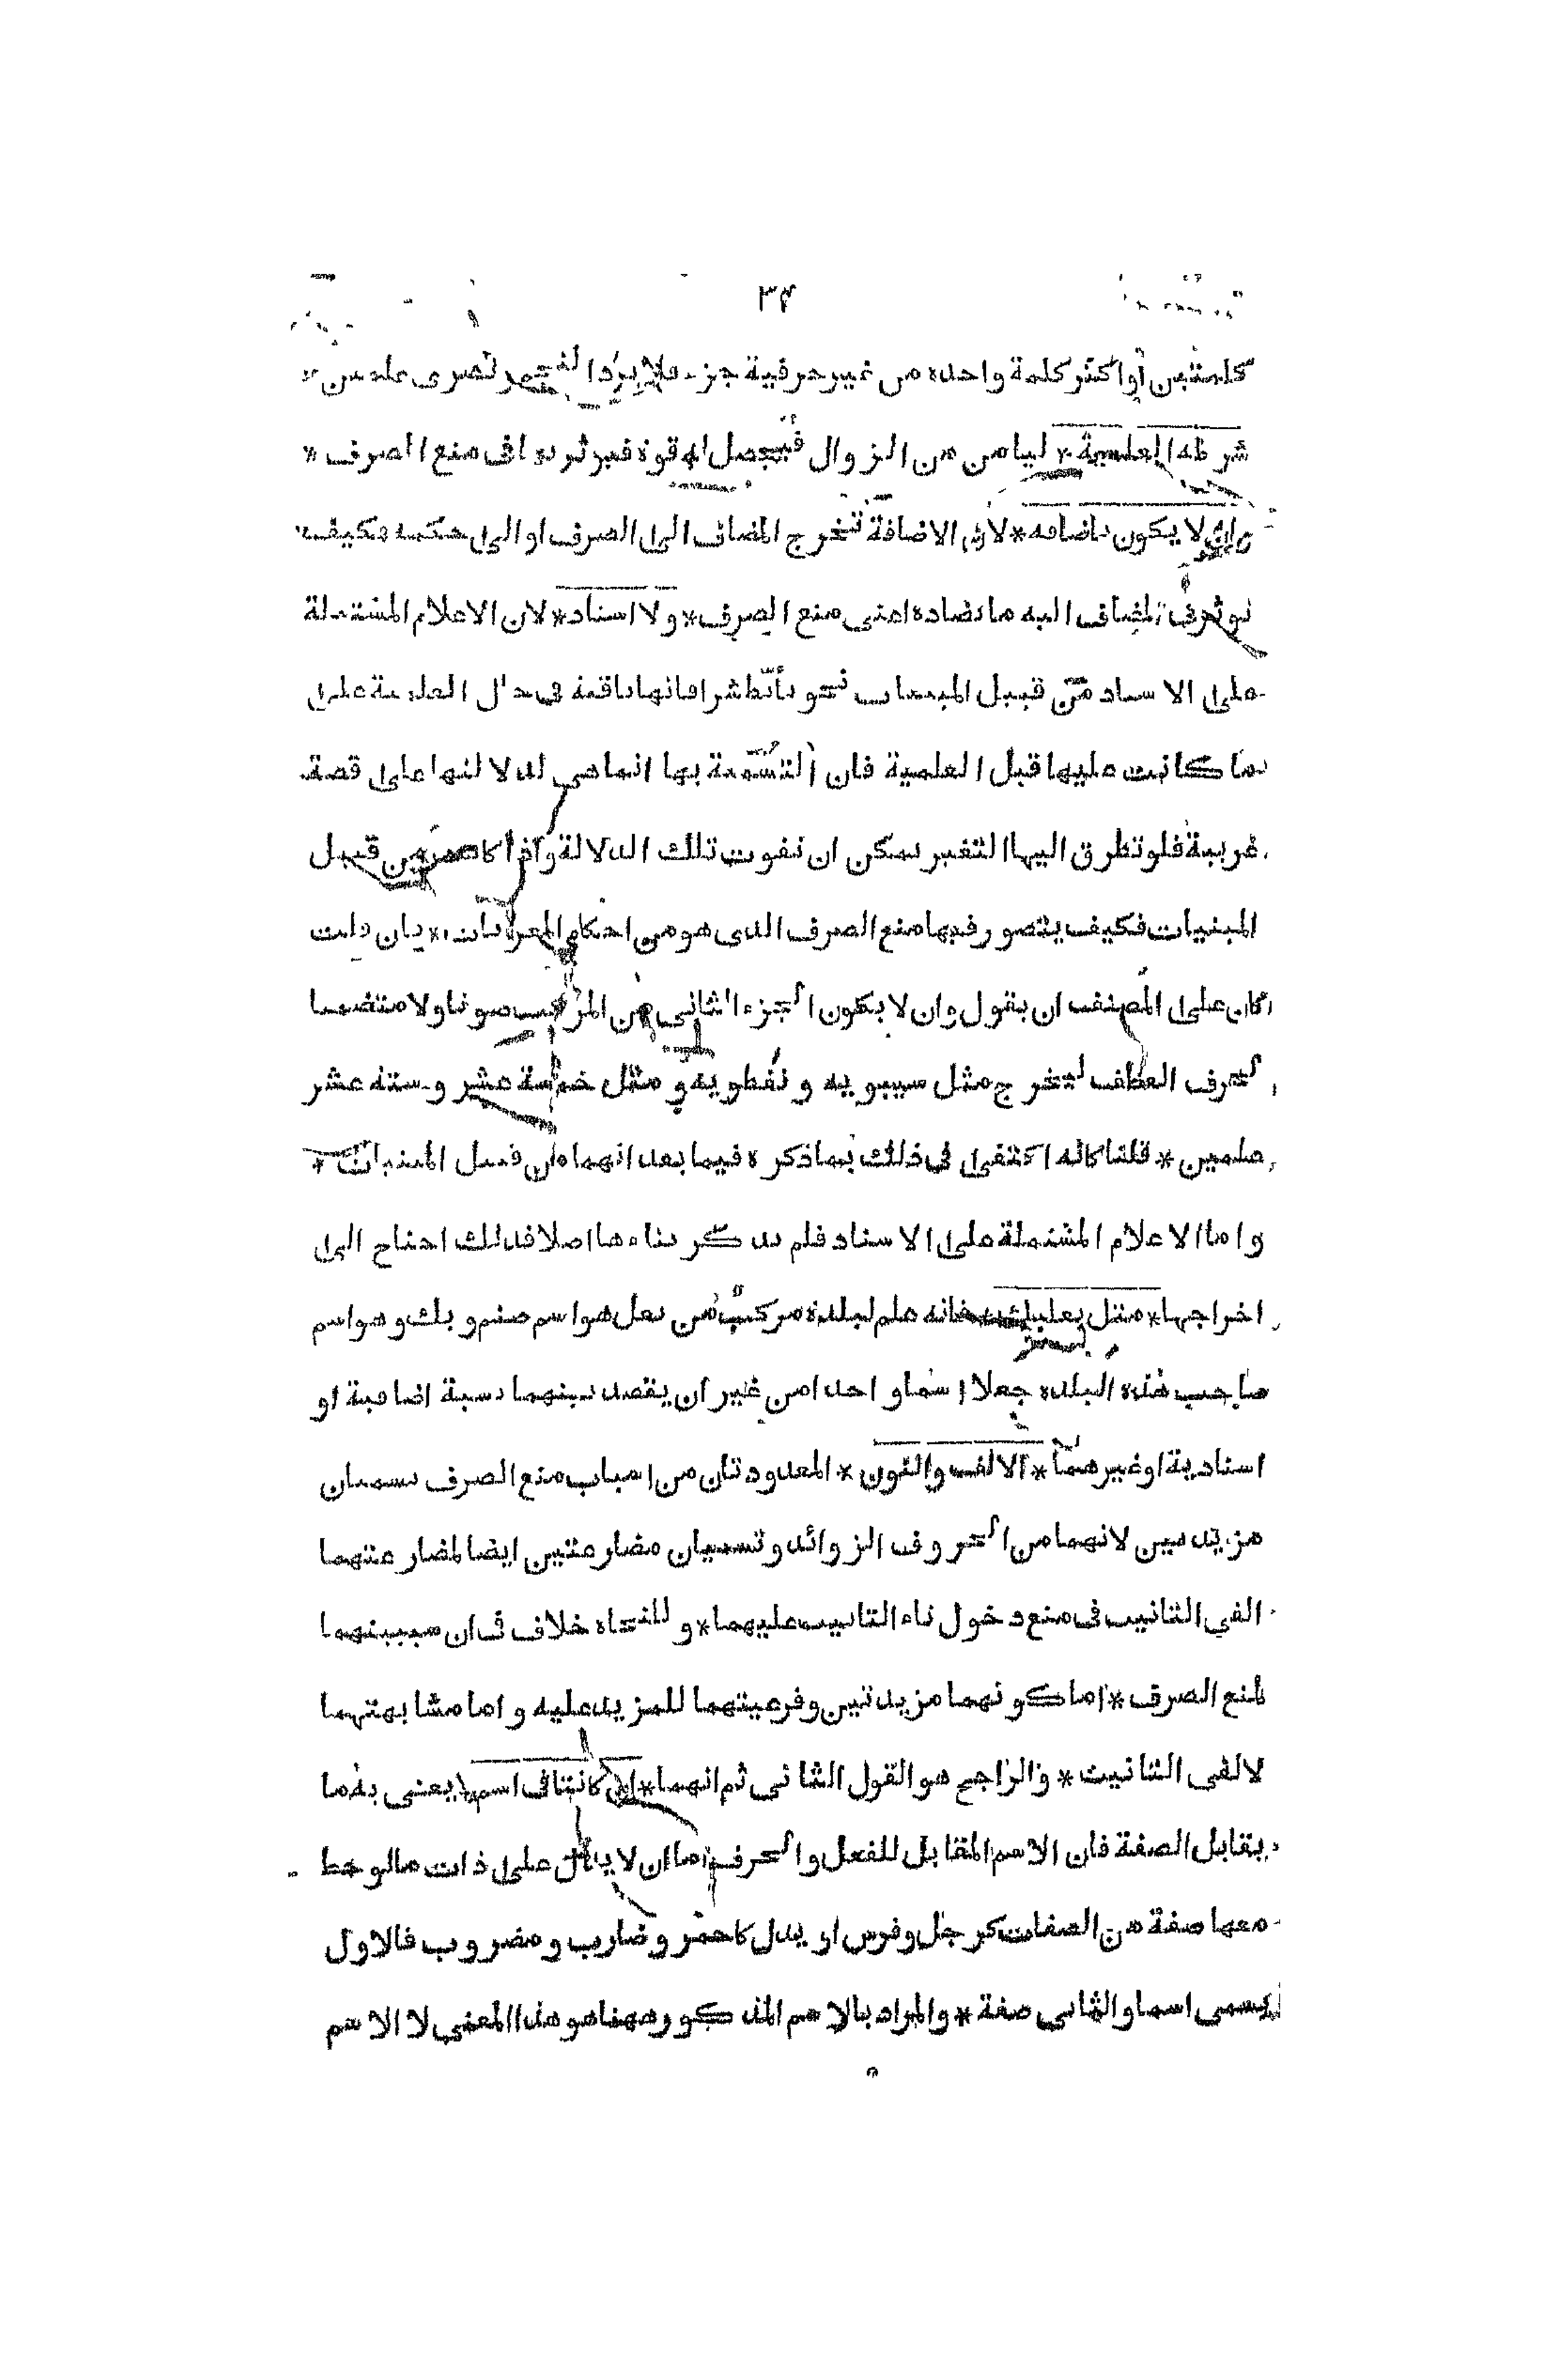 ٣٤
كلمتين أو اكثر كلمة واحدة من غير حرفية جزء فلا يرد النجم و بصرى علمين *
شرطه العلمية * ليامن من الزوال فيحصل له قوة فيوثر بها فى منع الصرف *
وان لا يكون باضافه * لان الاضافة تخرج المضاف الى الصرف او الى حكمه فكيف
يوثر فى المضاف اليه ما يضاده اعنى منع الصرف * ولا اسناد * لان الاعلام المشتملة
على الاسناد من قبيل المبنيات نحو تأبّط شرا فانها باقية فى حال العلمية على
ما كانت عليها قبل العلمية فان التسمية بها انما هى لدلالتها على قصة
غريبة فلو تطرق اليها التغير يمكن ان تفوت تلك الدلالة واذا كانت من قبيل
المبنيات فكيف يتصور فيها منع الصرف الذى هو من احكام المعربات * فان قلت
كان على المصنف ان يقول وان لا يكون الجزء الثانى من المركب صوتا ولا متضمنا
لحرف العطف ليخرج مثل سيبويه و نفطويه و مثل خمسة عشر و ستة عشر
علمين * قلنا كانه اكتفى فى ذلك بما ذكره فيما بعد انهما من قبيل المبنيات *
واما الاعلام المشتملة على الاسناد فلم يذكر بناءها اصلا فلذلك احتاج الى
اخراجها * مثل بعلبك * فانه علم لبلدة مركب من بعل هو اسم صنم و بك وهو اسم
صاحب هذه البلدة جعلا اسما واحدا من غير ان يقصد بينهما نسبة اضافية او
اسنادية او غيرهما * الالف والنون * المعدودتان من اسباب منع الصرف تسميان
مزيدتين لانهما من الحروف الزوائد وتسميان مضارعتين ايضا لمضارعتهما
الفى التانيث فى منع دخول تاء التانيث عليهما * و للنحاة خلاف فى ان سببيتهما
لمنع الصرف * اما كونهما مزيدتين وفرعيتهما للمزيد عليه و اما مشابهتهما
لالفى التانيث * و الراجح هو القول الثانى ثم انهما * ان كانتا فى اسم * يعنى به ما
يقابل الصفة فان الاسم المقابل للفعل والحرف اما ان لا يدل على ذات ما لوحظ
معها صفة من الصفات كرجل وفرس او يدل كاحمر وضارب ومضروب فالاول
يسمى اسما والثانى صفة * والمراد بالاسم المذكور ههنا هو هذا المعنى لا الاسم